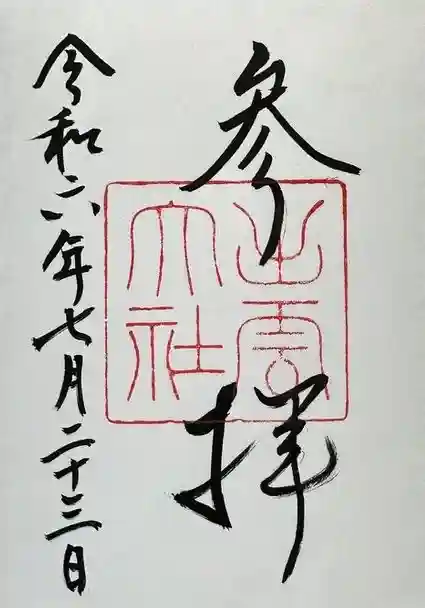 参拝
出雲
大社
令和六年七月二十三日